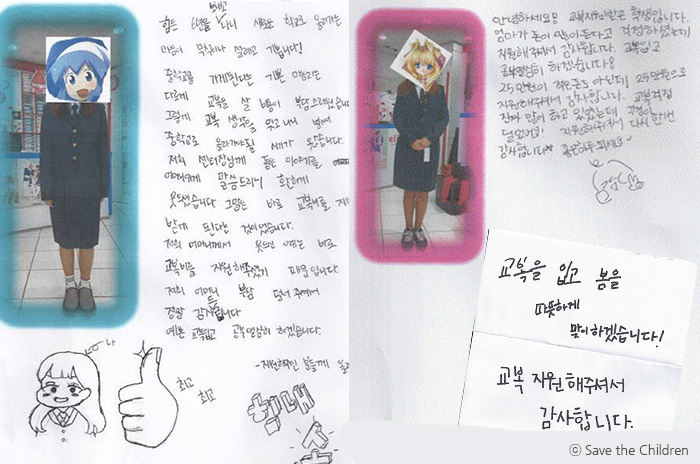 힘든 6년을 보내고 다시 새로운 학교로 올라가는
마음이 벅차거나 설레고 기쁩니다!
중학교를 가게된다는 기쁜 마음과는
다르게 교복을 살 비용이 부담스러웠습니다
그렇게 교복 생각을 잊고 나서
중학교로 올라가게될 새가 왔습니다.
저희 센터장님께 들은 이야기를
어머니에게 말씀드리니 환하게
웃으셨습니다 그말은 바로 교복비를
받게 된다는 것이었습니다.
저희 어머니께서 웃으신 이유는 바로
교복비를 지원해주셨기 때문입니다.
저희 어머니 부담 덜어 주셔서
정말 감사드립니다
예쁜 교복입고 공부열심히 하겠습니다.
-지원해주신 분들께
나
최고
최고
힘내
안녕하세요! 교복지원받은 학생입니다.
엄마가 돈이 많이든다고 걱정하셨는데
지원해주셔서 감사합니다. 교복입고
공부열심히 하겠습니다!
25만원이 적은돈도 아닌데 25만원으로
지원해주셔서 감사합니다. 교복걱정
진짜 많이 하고 있었는데 걱정이
덜었어요! 지원해주셔서 다시 한번
감사합니다 좋은하루 되세요~
교복을 입고 봄을
따뜻하게
맞이하겠습니다!
교복 지원해주셔서
감사합니다.
ⓒ Save the Children